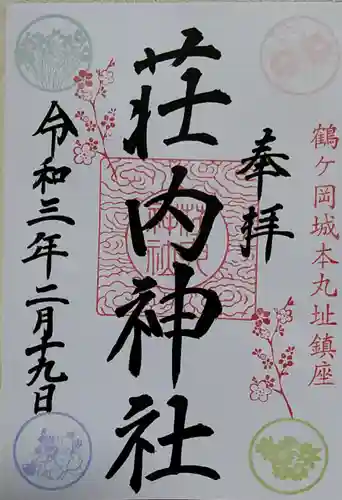 鶴ヶ岡城本丸址鎮座
奉拝
荘内神社
令和三年二月十九日